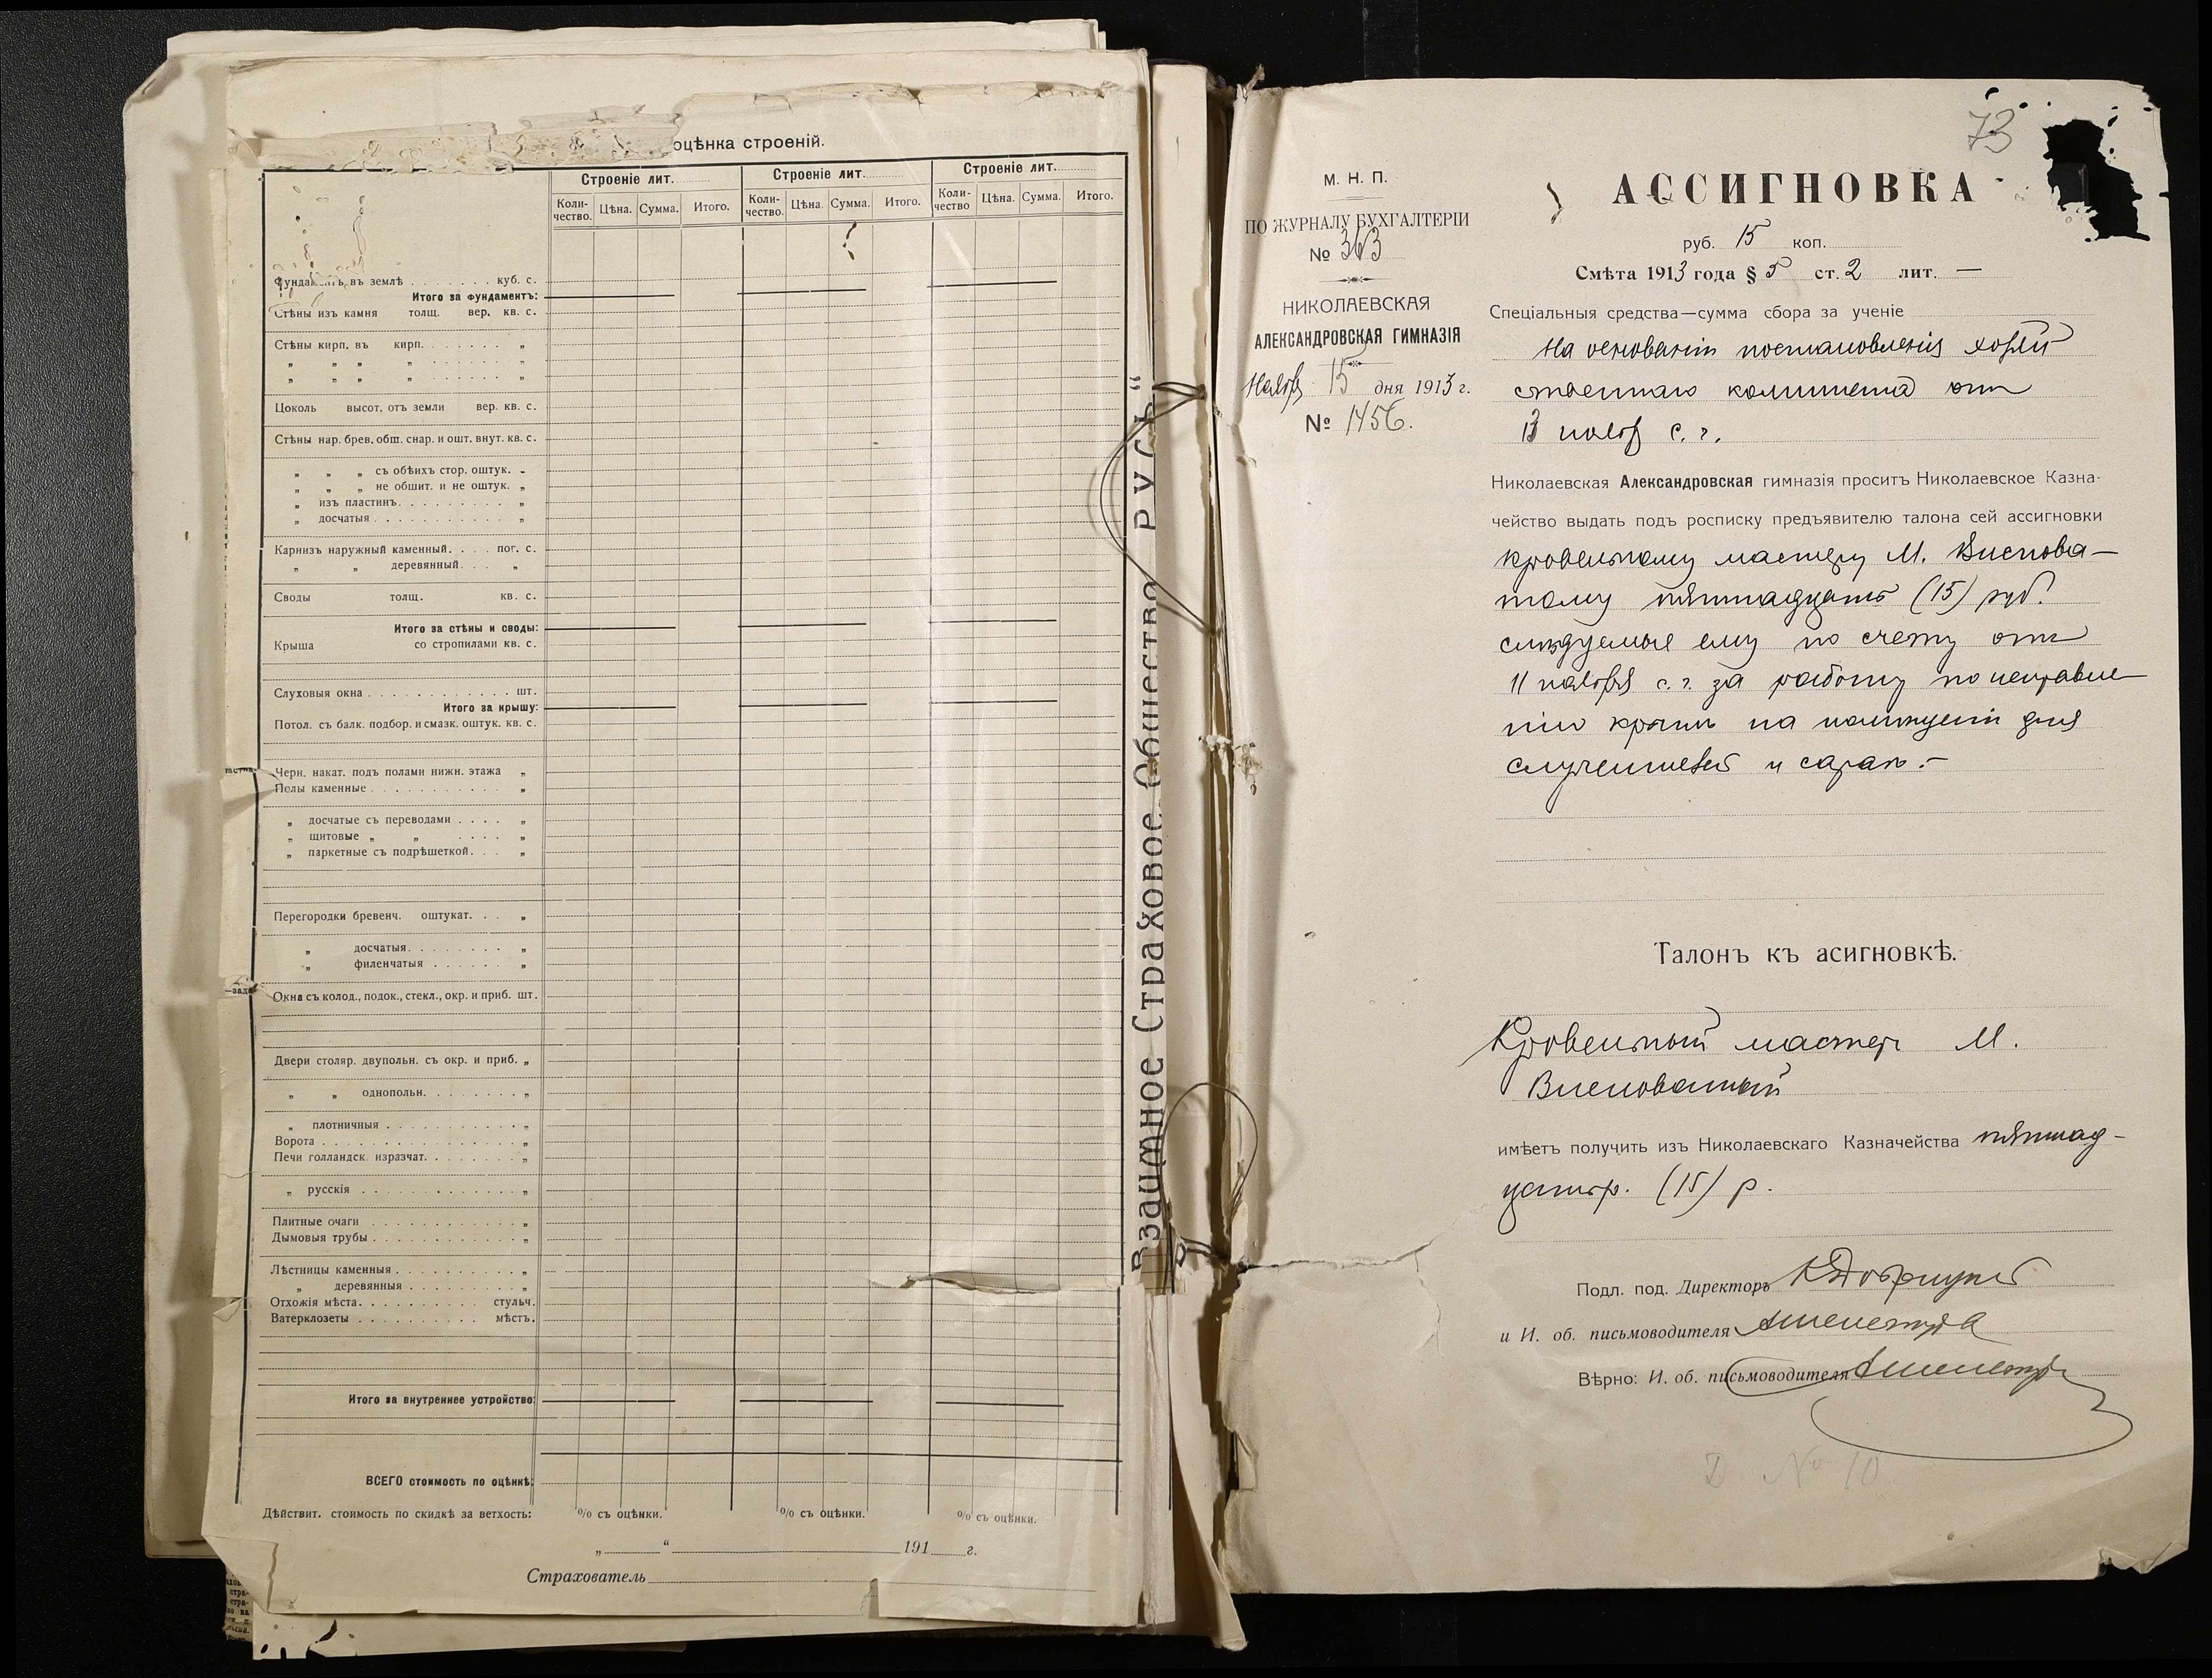 оцѣнка строеній.
Строеніе лит. Строеніе лит. Строеніе лит.
Коли-чество. Цѣна. Сумма. Итого. Коли-чество. Цѣна. Сумма. Итого. Коли-чество Цѣна. Сумма. Итого.
Фундаментъ въ землѣ куб. с.
Итого за фундаментъ:
Стѣны изъ камня толщ. вер. кв. с.
Стѣны кирп. въ кирп. „
„ „ „ „ „
„ „ „ „ „
Цоколь высот, отъ земли вер. кв. с.
Стѣны нар. брев. обш. снар. и ошт. внут. кв. с.
„ „ „ съ обѣихъ стор. оштук. „
„ „ „ не обшит. и не оштук. „
„ изъ пластинъ. „
„ досчатыя „
Карнизъ наружный каменный. пог. с.
„ „ деревянный. „
Своды толщ. кв. с.
Итого за стѣны и своды:
Крыша со стропилами кв. с.
Слуховыя окна шт.
Итого за крышу:
Потол. съ балк. подбор. и смазк. оштук. кв. с.
Черн. накат. подъ полами нижн. этажа „
Полы каменные „
„ досчатые съ переводами „
„ щитовые „ „ „
„ паркетные съ подрѣшеткой. „
Перегородки бревенч. оштукат. „
„ досчатыя. „
„ филенчатыя „
Окна съ колод., подок., стекл., окр. и приб. шт.
Двери столяр. двупольн. съ окр. и приб. „
„ „ однопольн. „
„ плотничныя „
Ворота „
Печи голландск. изразчат. „
„ русскія „
Плитные очаги „
Дымовыя трубы „
Лѣстницы каменныя „
„ деревянныя „
Отхожія мѣста. стульч.
Ватерклозеты мѣстъ.
Итого за внутреннее устройство:
ВСЕГО стоимость по оцѣнкѣ:
Дѣйствит. стоимость по скидкѣ за ветхость: % съ оцѣнки. % съ оцѣнки. % съ оцѣнки.
„ “ 191 г.
Страхователь
Взаимное Страховое Общество РУСЬ“
73
М. Н. П.
ПО ЖУРНАЛУ БУХГАЛТЕРІИ
№ 363
НИКОЛАЕВСКАЯ
АЛЕКСАНДРОВСКАЯ ГИМНАЗІЯ
Нояб. 15 дня 1913 г.
№ 1456.
АССИГНОВКА
руб. 15 коп.
Смѣта 1913 года § 5 ст. 2 лит. —
Спеціальныя средства—сумма сбора за ученіе
На основаніи постановленія хозяй
ственнаго комитета отъ
13 нояб. с. г.
Николаевская Александровская гимназія проситъ Николаевское Казна-
чейство выдать подъ росписку предъявителю талона сей ассигновки
кровельному мастеру М. Виснова-
тому пятнадцать (15) руб.
слѣдуемые ему по счету отъ
11 ноября с. г. за работу по исправле
нію крыш на помѣщеніи для
служителей и сарая.—
Талонъ къ асигновкѣ.
Кровельный мастеръ М.
Висноватый
имѣетъ получить изъ Николаевскаго Казначейства пятнад-
цать р. (15) р.
Подл. под. Директоръ
и И. об. письмоводителя
Вѣрно: И. об. письмоводителя
D № 10